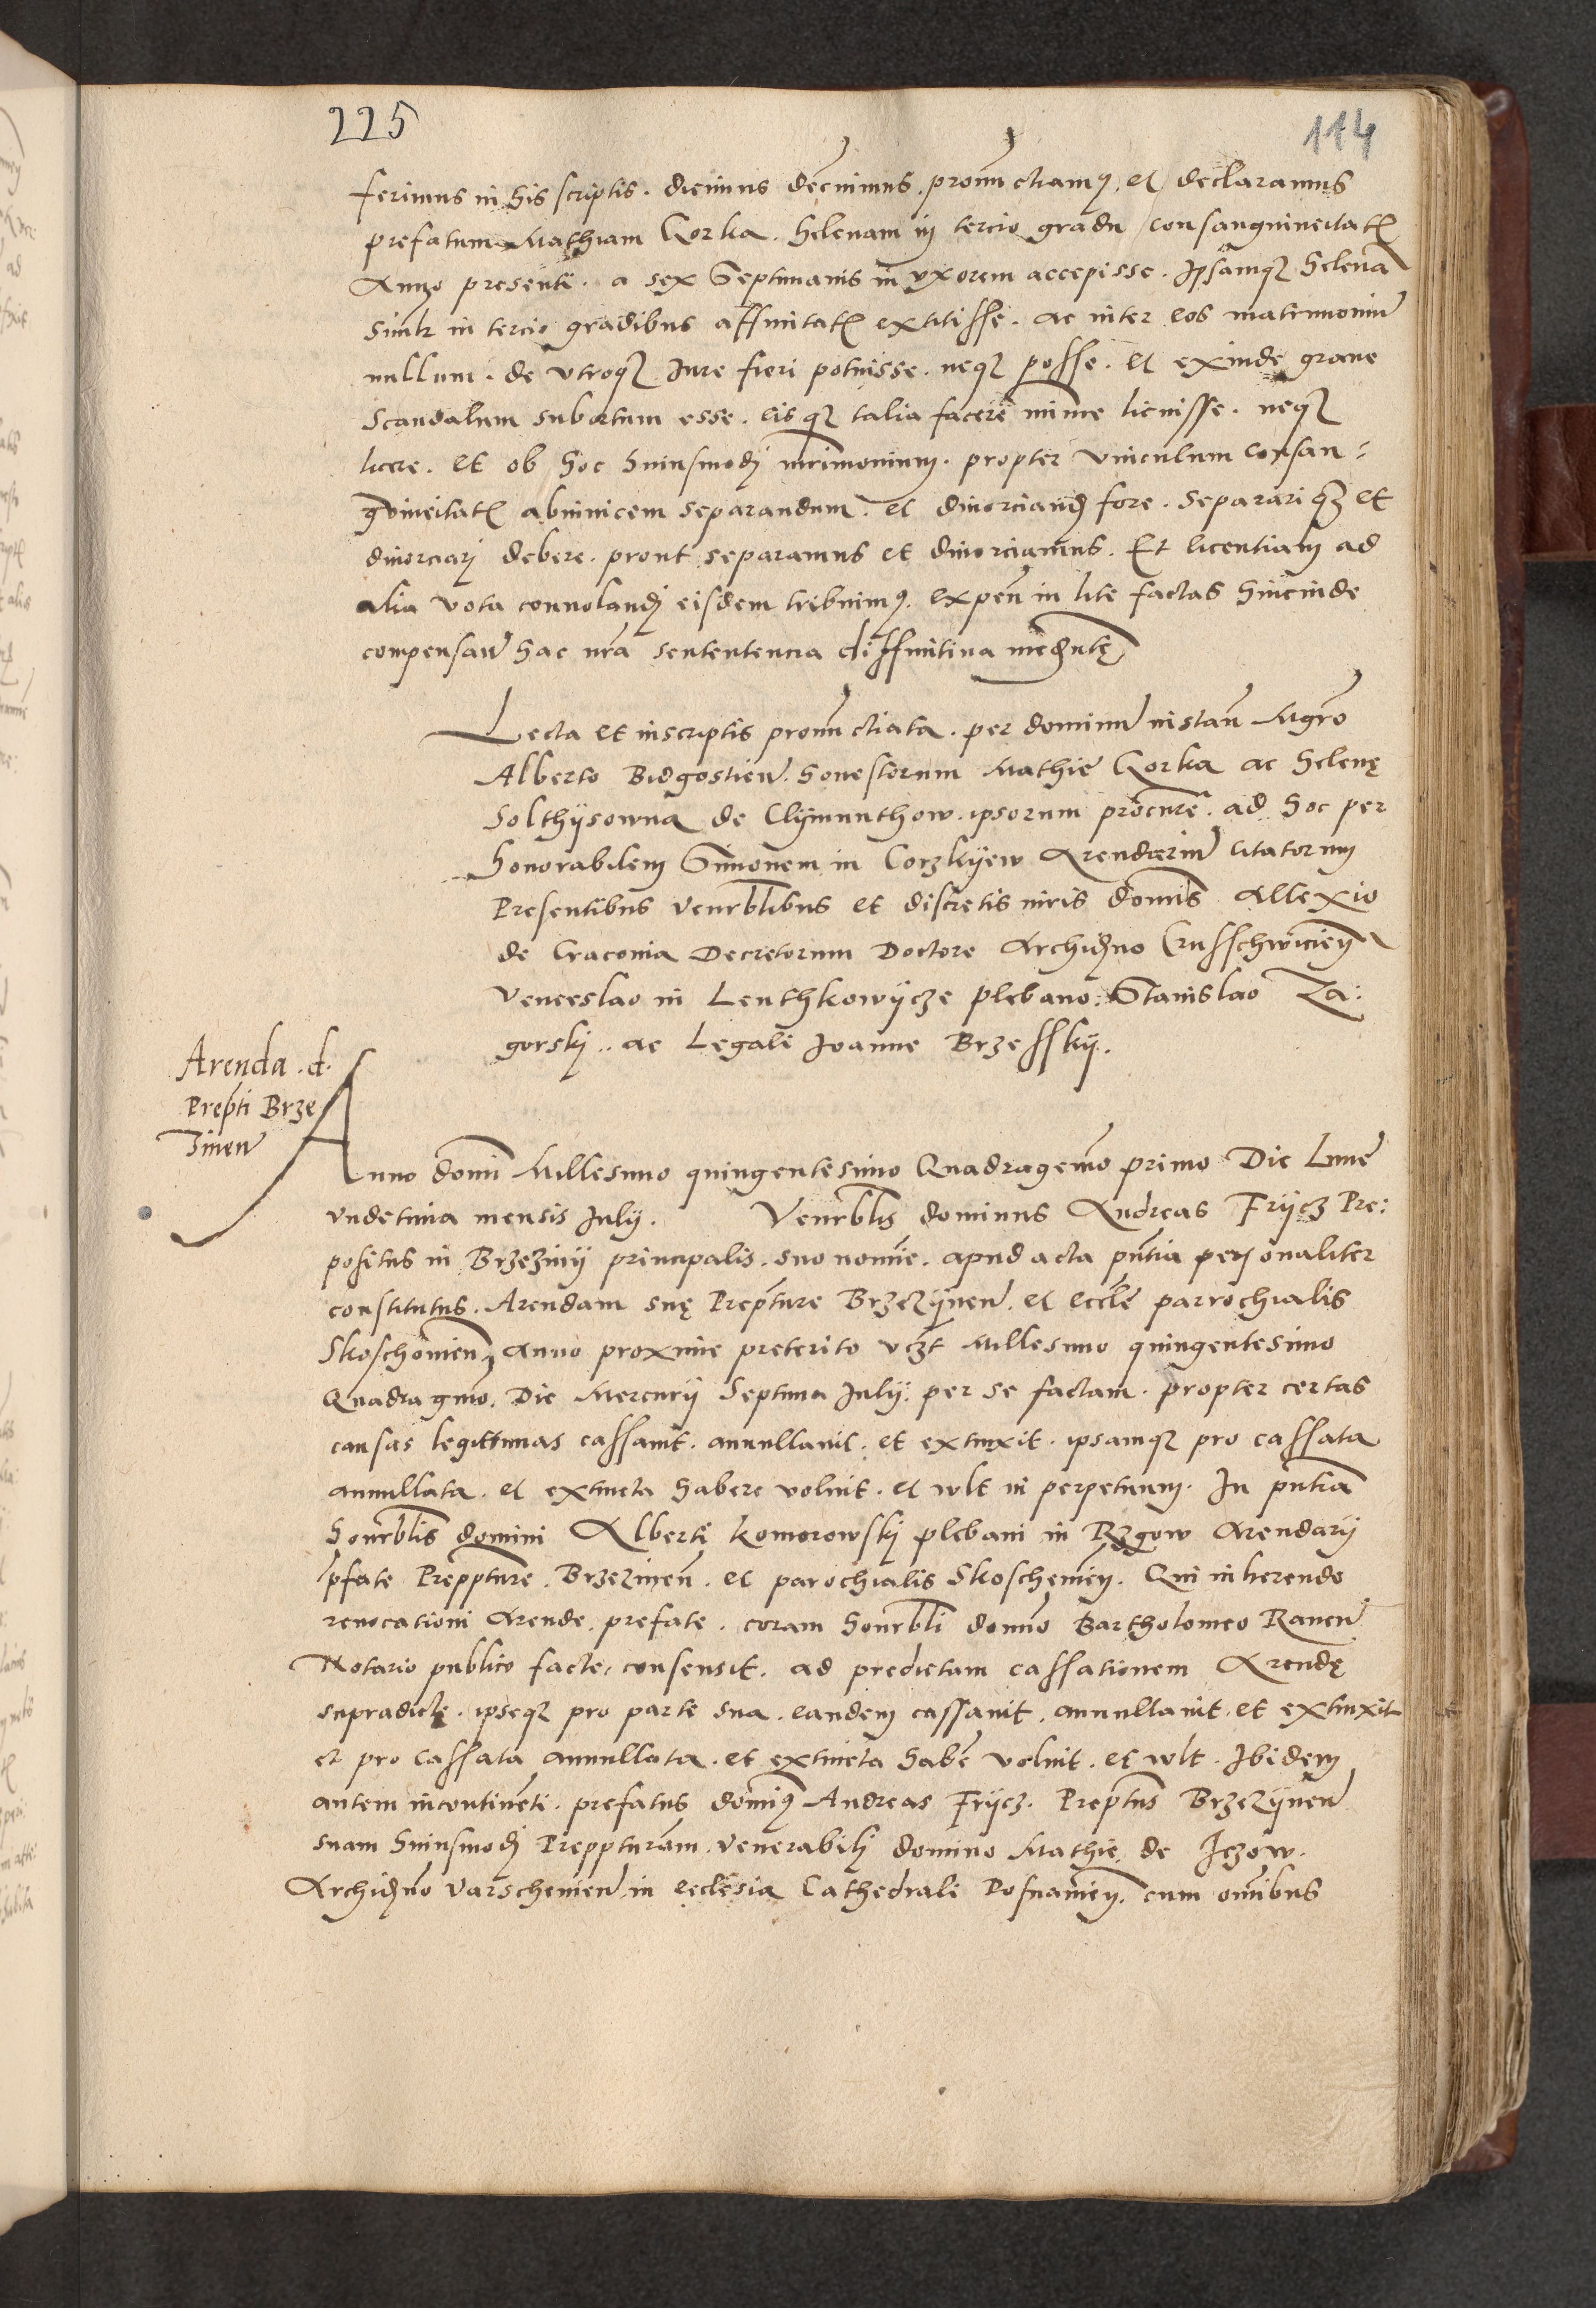 225
114
ferimus in his scriptis. dicimus decnimus. pronunctiamus. et declaramus
prefatum Mathiam Gorka. Helenam in tercio gradu consanguineitatis
Anno presenti. a sex Septimanis in vxorem accepisse. Ipsamq3 Helenā
Simlr in tercio gradibus affinitatis extitisse. ac inter eos matrimoniū
nullum. de vtroq3 Iure fieri potuisse. neq3 posse. et exinde graue
Scandalum subortum esse. eis q3 talia facere minime licuisse. neq3
licere. et ob hoc huiusmodj mrimonium. propter vinculum consan:
guineitatis abinuicem separandum. et diuorciand fore. Separari q3 et
diuorciarj debere. prout separamus et diuorciamus. Et licentiam ad
alia vota conuolandj eisdem tribuimus. expen in lite factas hincinde
compensan hac nrā sententencia diffinitiua mediante
Lecta et inscriptis pronunctiata. per dominū instan Mgro
Alberto Bidgostien. honestorum Mathie Gorka ac Helenę
Solthysowna de Clymunthow. ipsorum procure. ad hoc per
Honorabilem Simonem in Corzkyew Arendariū citatorum
Presentibus venrblibus et discretis uiris domis Allexio
de Cracouia Decretorum Doctore Archidno Crusschwicien
Venceslao in Lenthkowycze plebano. Stanislao Za:
gorskj.. ac Legali Ioanne Brzesskij.
Arenda. d.
Prepti Brze
zinen
Anno domi Millesimo quingentesimo Quadragemo primo Die Lune
vndecima mensis Iulij. Venrblis dominus Andreas Frijcz Pre:
positus in Brzezinij principalis. suo nomie. apud acta pntia personaliter
constitutus. Arendam suę Prepture Brzezijnen. et eccle parrochialis
Skoschonien anno proxime preterito vczt Millesimo quingentesimo
Quadragmo. Die Mercurij Septima Iulij. per se factam. propter certas
causas legittimas cassauit. annullauit. et extinxit. ipsamq3 pro cassata
annullata. et extincta habere voluit. et wlt in perpetuum. In pntia
Honrblis domini Alberti Komorowskj plebani in Rzgow Arendarij
pfate Preppture. Brzezinen. et parochialis Skoschenien. Qui inherendo
reuocationi Arende. prefate. coram honrbli domno Bartholomeo Rauen
Notario publico facte. consensit. ad predictam cassationem Arendę
supradicte. ipseq3 pro parte sua. eandem cassauit. annullauit. et extinxit
et pro cassata annullata. et extincta habē voluit. et wlt. Ibidem
autem incontinēti. prefatus domius Andreas Frijcz. Preptus Brzezijnen
suam huiusmodj Preppturam. Venerabilj domino Mathie de Iezow.
Archidno Varschouien in ecclesia Cathedrali Posnanien. cum omibus